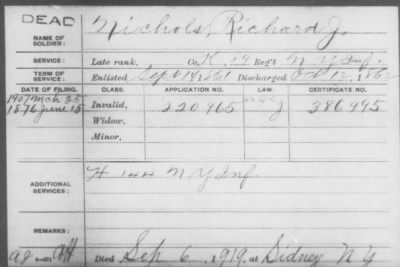 DEAD
NAME OF SOLDIER: Nichols, Richard J.
SERVICE: Late rank, Co. K, Reg't N.Y. Inf.
TERM OF SERVICE: Enlisted Sept 14, 1861 Discharged Oct 12, 186
DATE OF FILING. CLASS. APPLICATION NO. LAW. CERTIFICATE NO.
1907 Mch 25
1876 June 15 Invalid, 220,965 J 386,995
Widow,
Minor,
ADDITIONAL SERVICES: H 144 N Y Inf.
REMARKS:
Died Sep 6, 1919, at Sidney N Y